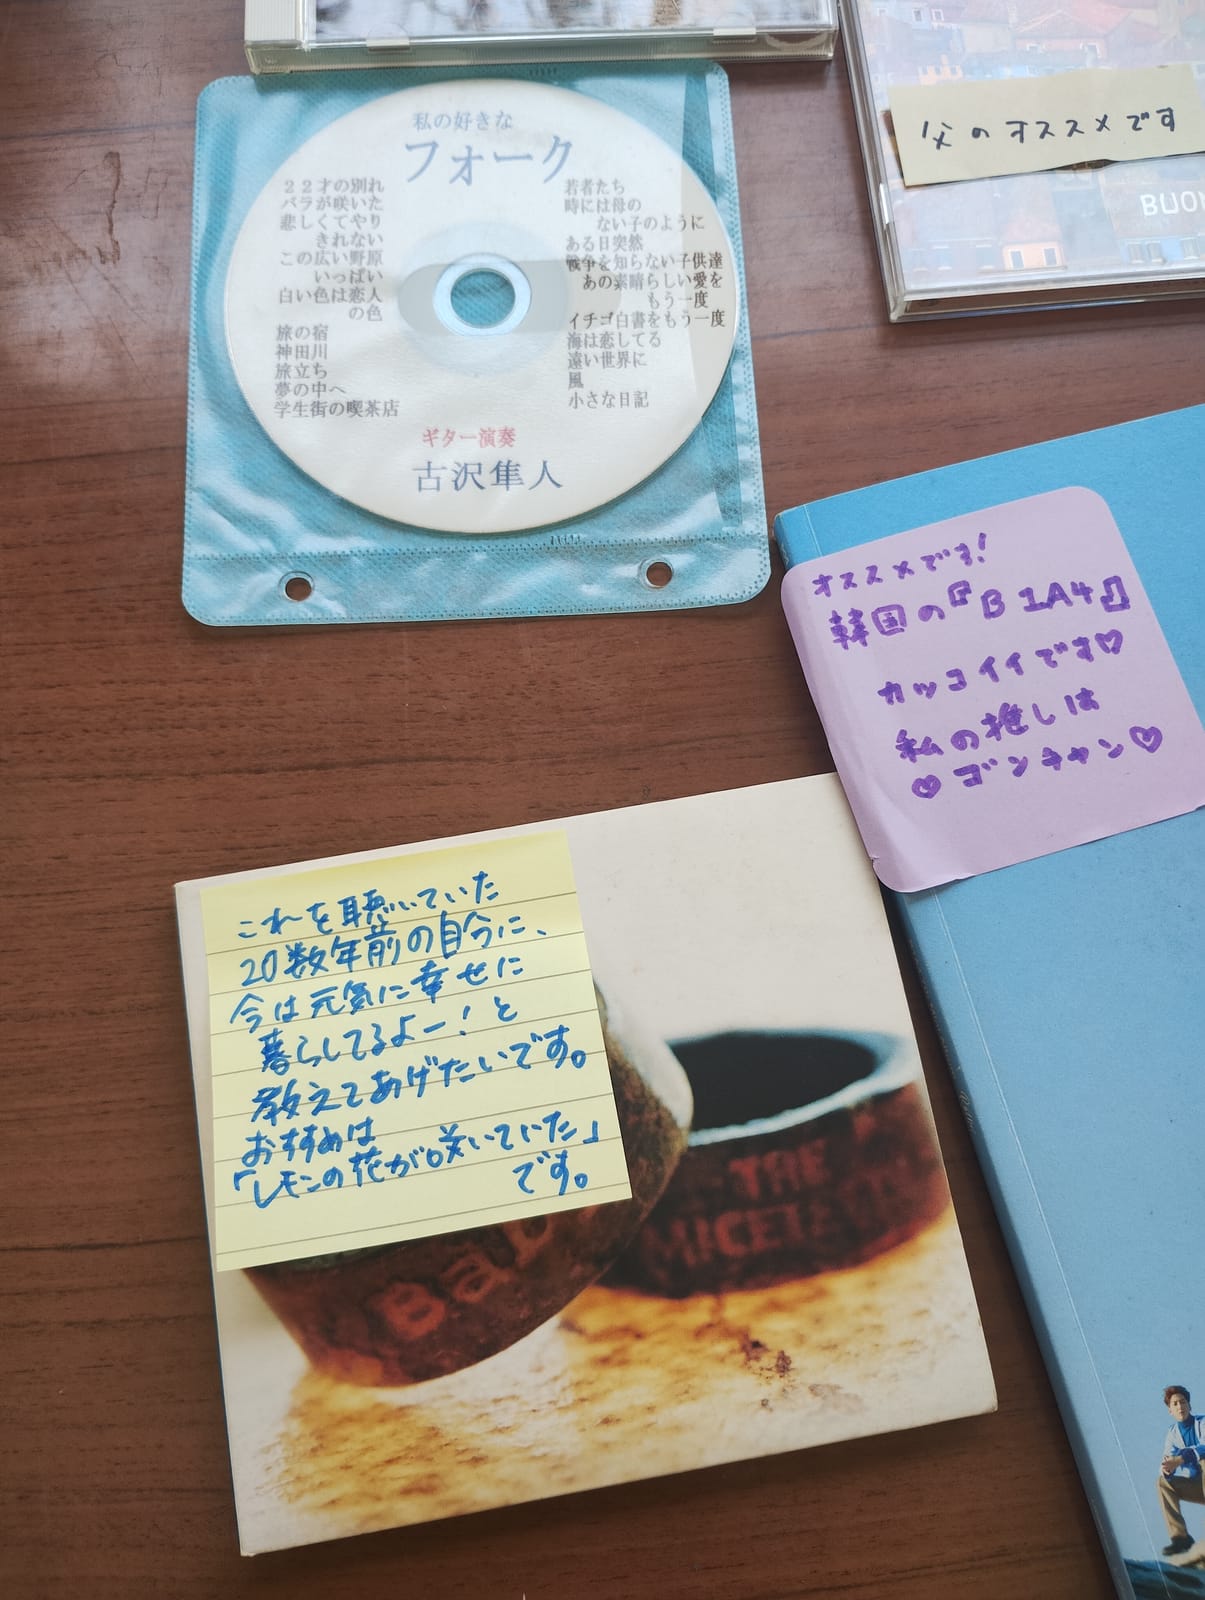 私の好きな
フォーク
22才の別れ
バラが咲いた
悲しくてやり
きれない
この広い野原
いっぱい
白い色は恋人
の色
旅の宿
神田川
旅立ち
夢の中へ
学生街の喫茶店
若者たち
時には母の
ない子のように
ある日突然
戦争を知らない子供達
あの素晴らしい愛を
もう一度
イチゴ白書をもう一度
海は恋してる
遠い世界に
風
小さな日記
ギター演奏
古沢隼人
父のオススメです
BUON
オススメです!
韓国の『B1A4』
カッコイイです♡
私の推しは
♡ゴンチャン♡
これを聴いていた
20数年前の自分に、
今は元気に幸せに
暮らしてるよー!と
教えてあげたいです。
おすすめは
「レモンの花が咲いていた」
です。
THE